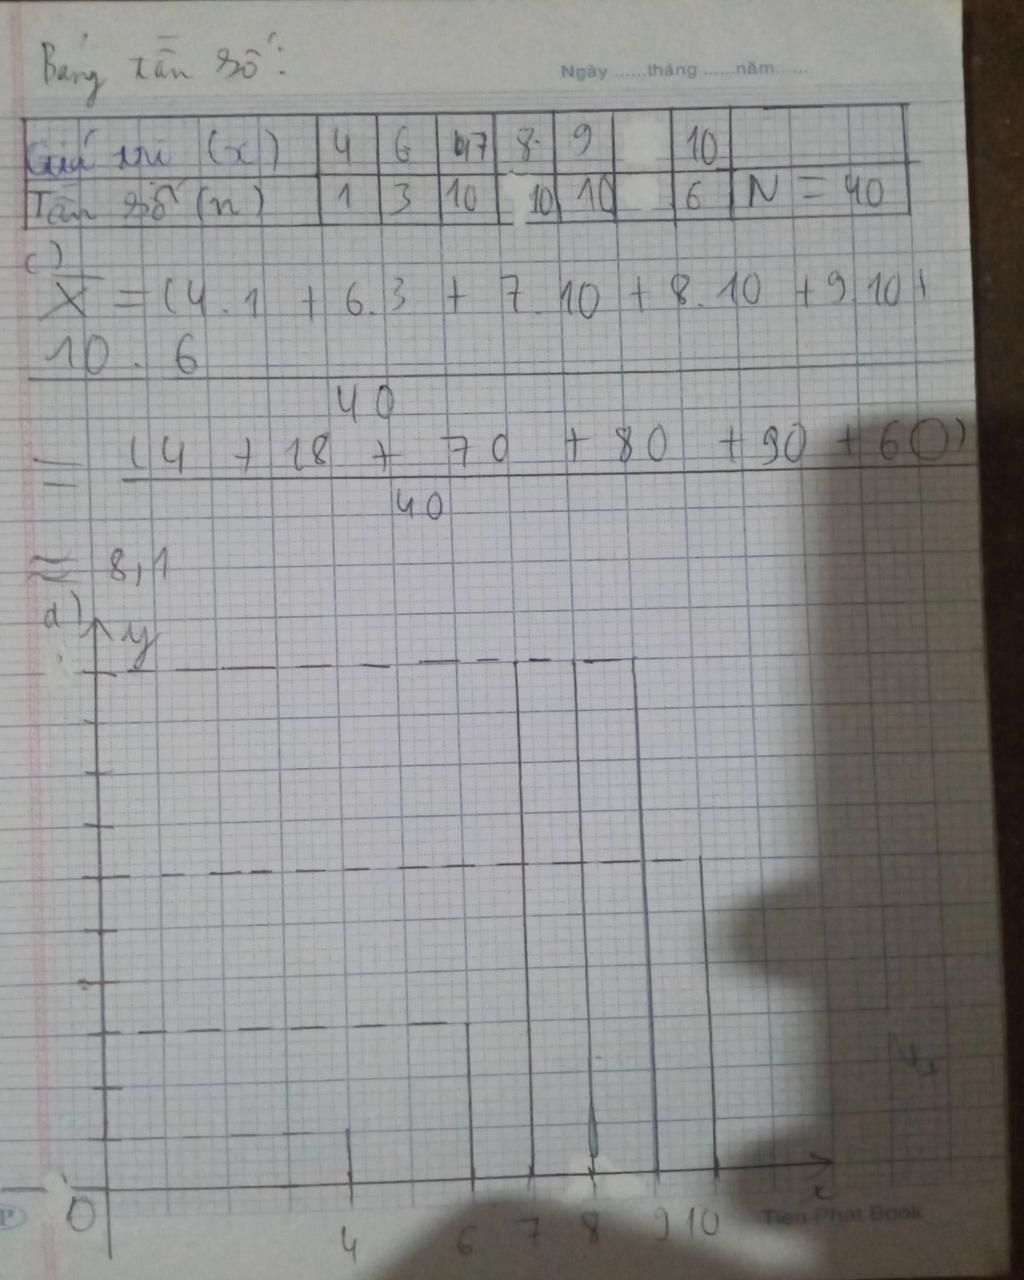 Bảng tần số:
Ngày ......tháng ......năm......
Giá trị (x) 4 6 7 8 9 10
Tần số (n) 1 3 10 10 10 6 N = 40
c)
X̄ = (4.1 + 6.3 + 7.10 + 8.10 + 9.10+
10.6
40
= (4 + 18 + 70 + 80 + 90 + 60)
40
≈ 8,1
d) y
x
0 4 6 7 8 9 10
Tien Phat Book